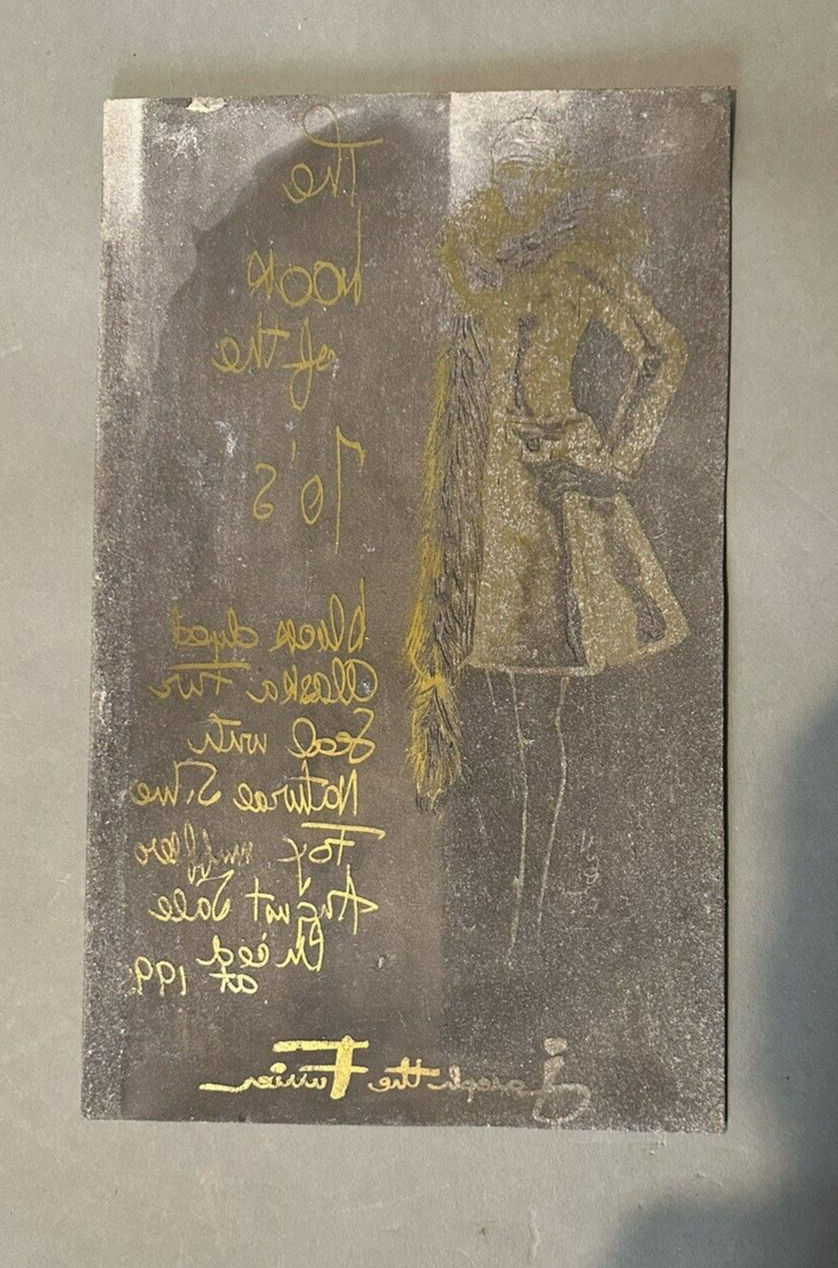 The
Look
of the
70's
black dyed
Alaska Fur
Seal with
Natural Blue
Fox muffler
August Sale
Priced
at 199.
Joseph the Furrier